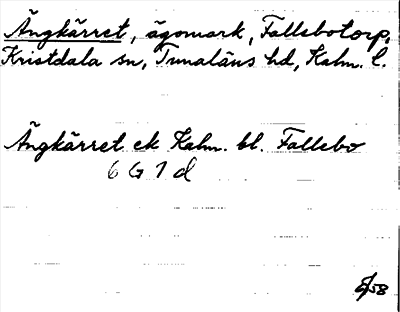 Ängkärret, ägomark, Fallebotorp,
Kristdala sn, Tunaläns hd, Kalm. l.
Ängkärret ek Kalm. bl. Fallebo
6 G 7 d
58